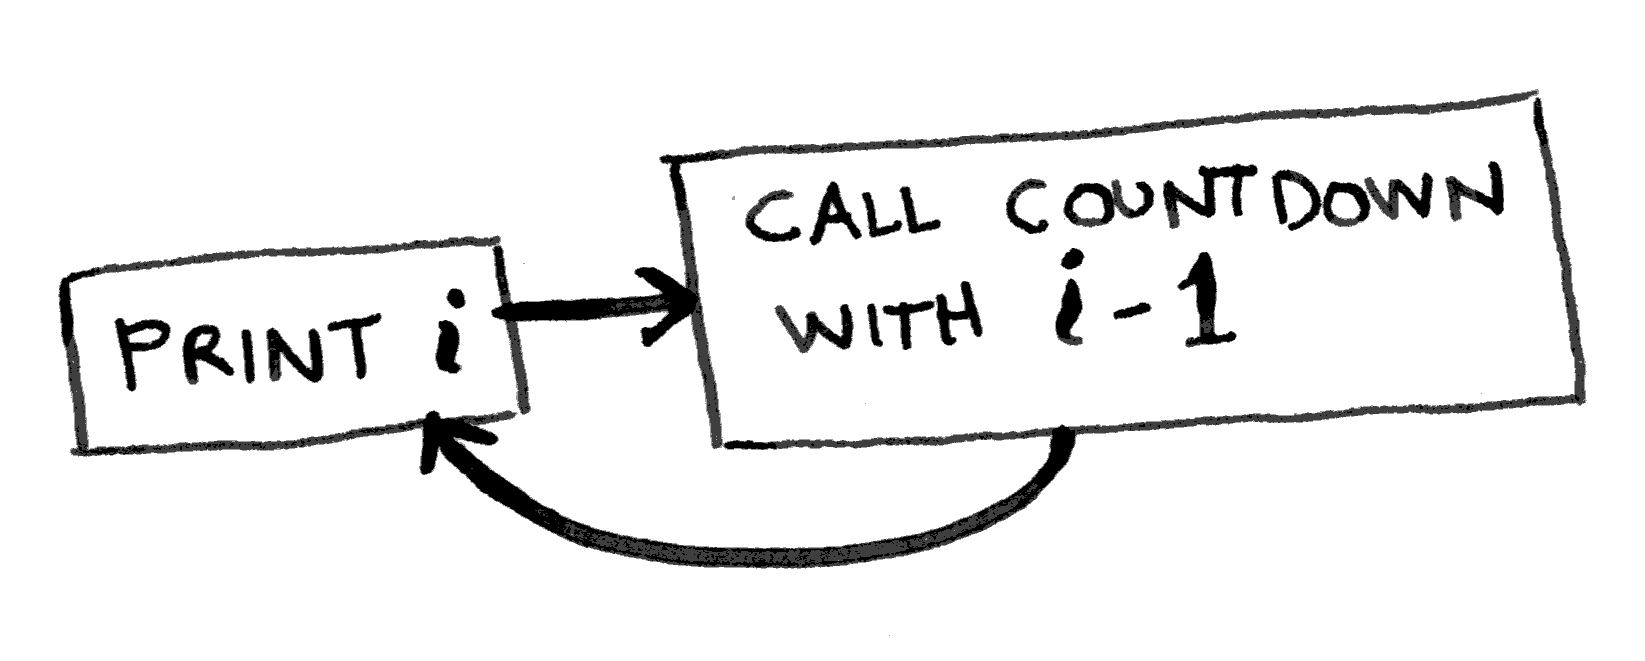 PRINT i
CALL COUNTDOWN
WITH i-1